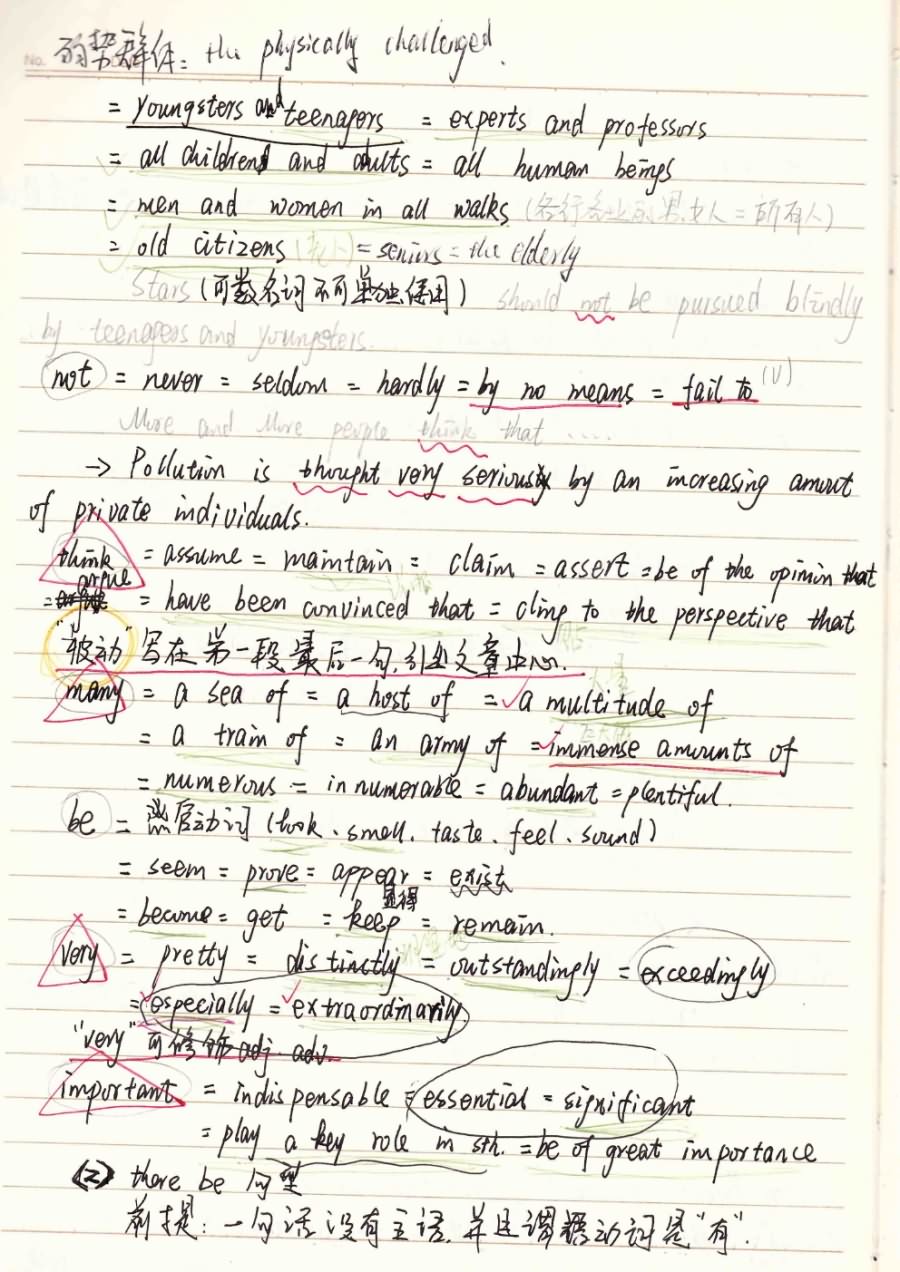 弱势群体: the physically challenged.
= youngsters and teenagers = experts and professors
= all children and adults = all human beings
= men and women in all walks (各行各业的男.女人=所有人)
= old citizens (老人) = seniors = the elderly
Stars (可数名词不可单独使用) should not be pursued blindly
by teenagers and youngsters.
not = never = seldom = hardly = by no means = fail to (V)
More and More people think that ....
→ Pollution is thought very seriously by an increasing amout
of private individuals.
think = assume = maintain = claim = assert = be of the opinion that
= argue = have been convinced that = cling to the perspective that
"被动" 写在第一段最后一句,引出文章中心.
many = a sea of = a host of = a multitude of
= a train of = an army of = immense amounts of
= numerous = innumerable = abundant = plentiful.
be = 感官动词 (look、smell、taste、feel、sound)
= seem = prove = appear = exist
显得
= become = get = keep = remain.
very = pretty = distinctly = outstandingly = exceedingly
= especially = extraordinarily
"very" 可修饰 adj. adv.
important = indispensable = essential = significant
= play a key role in sth. = be of great importance
(2) there be 句型
前提: 一句话没有主语,并且谓语动词是"有".